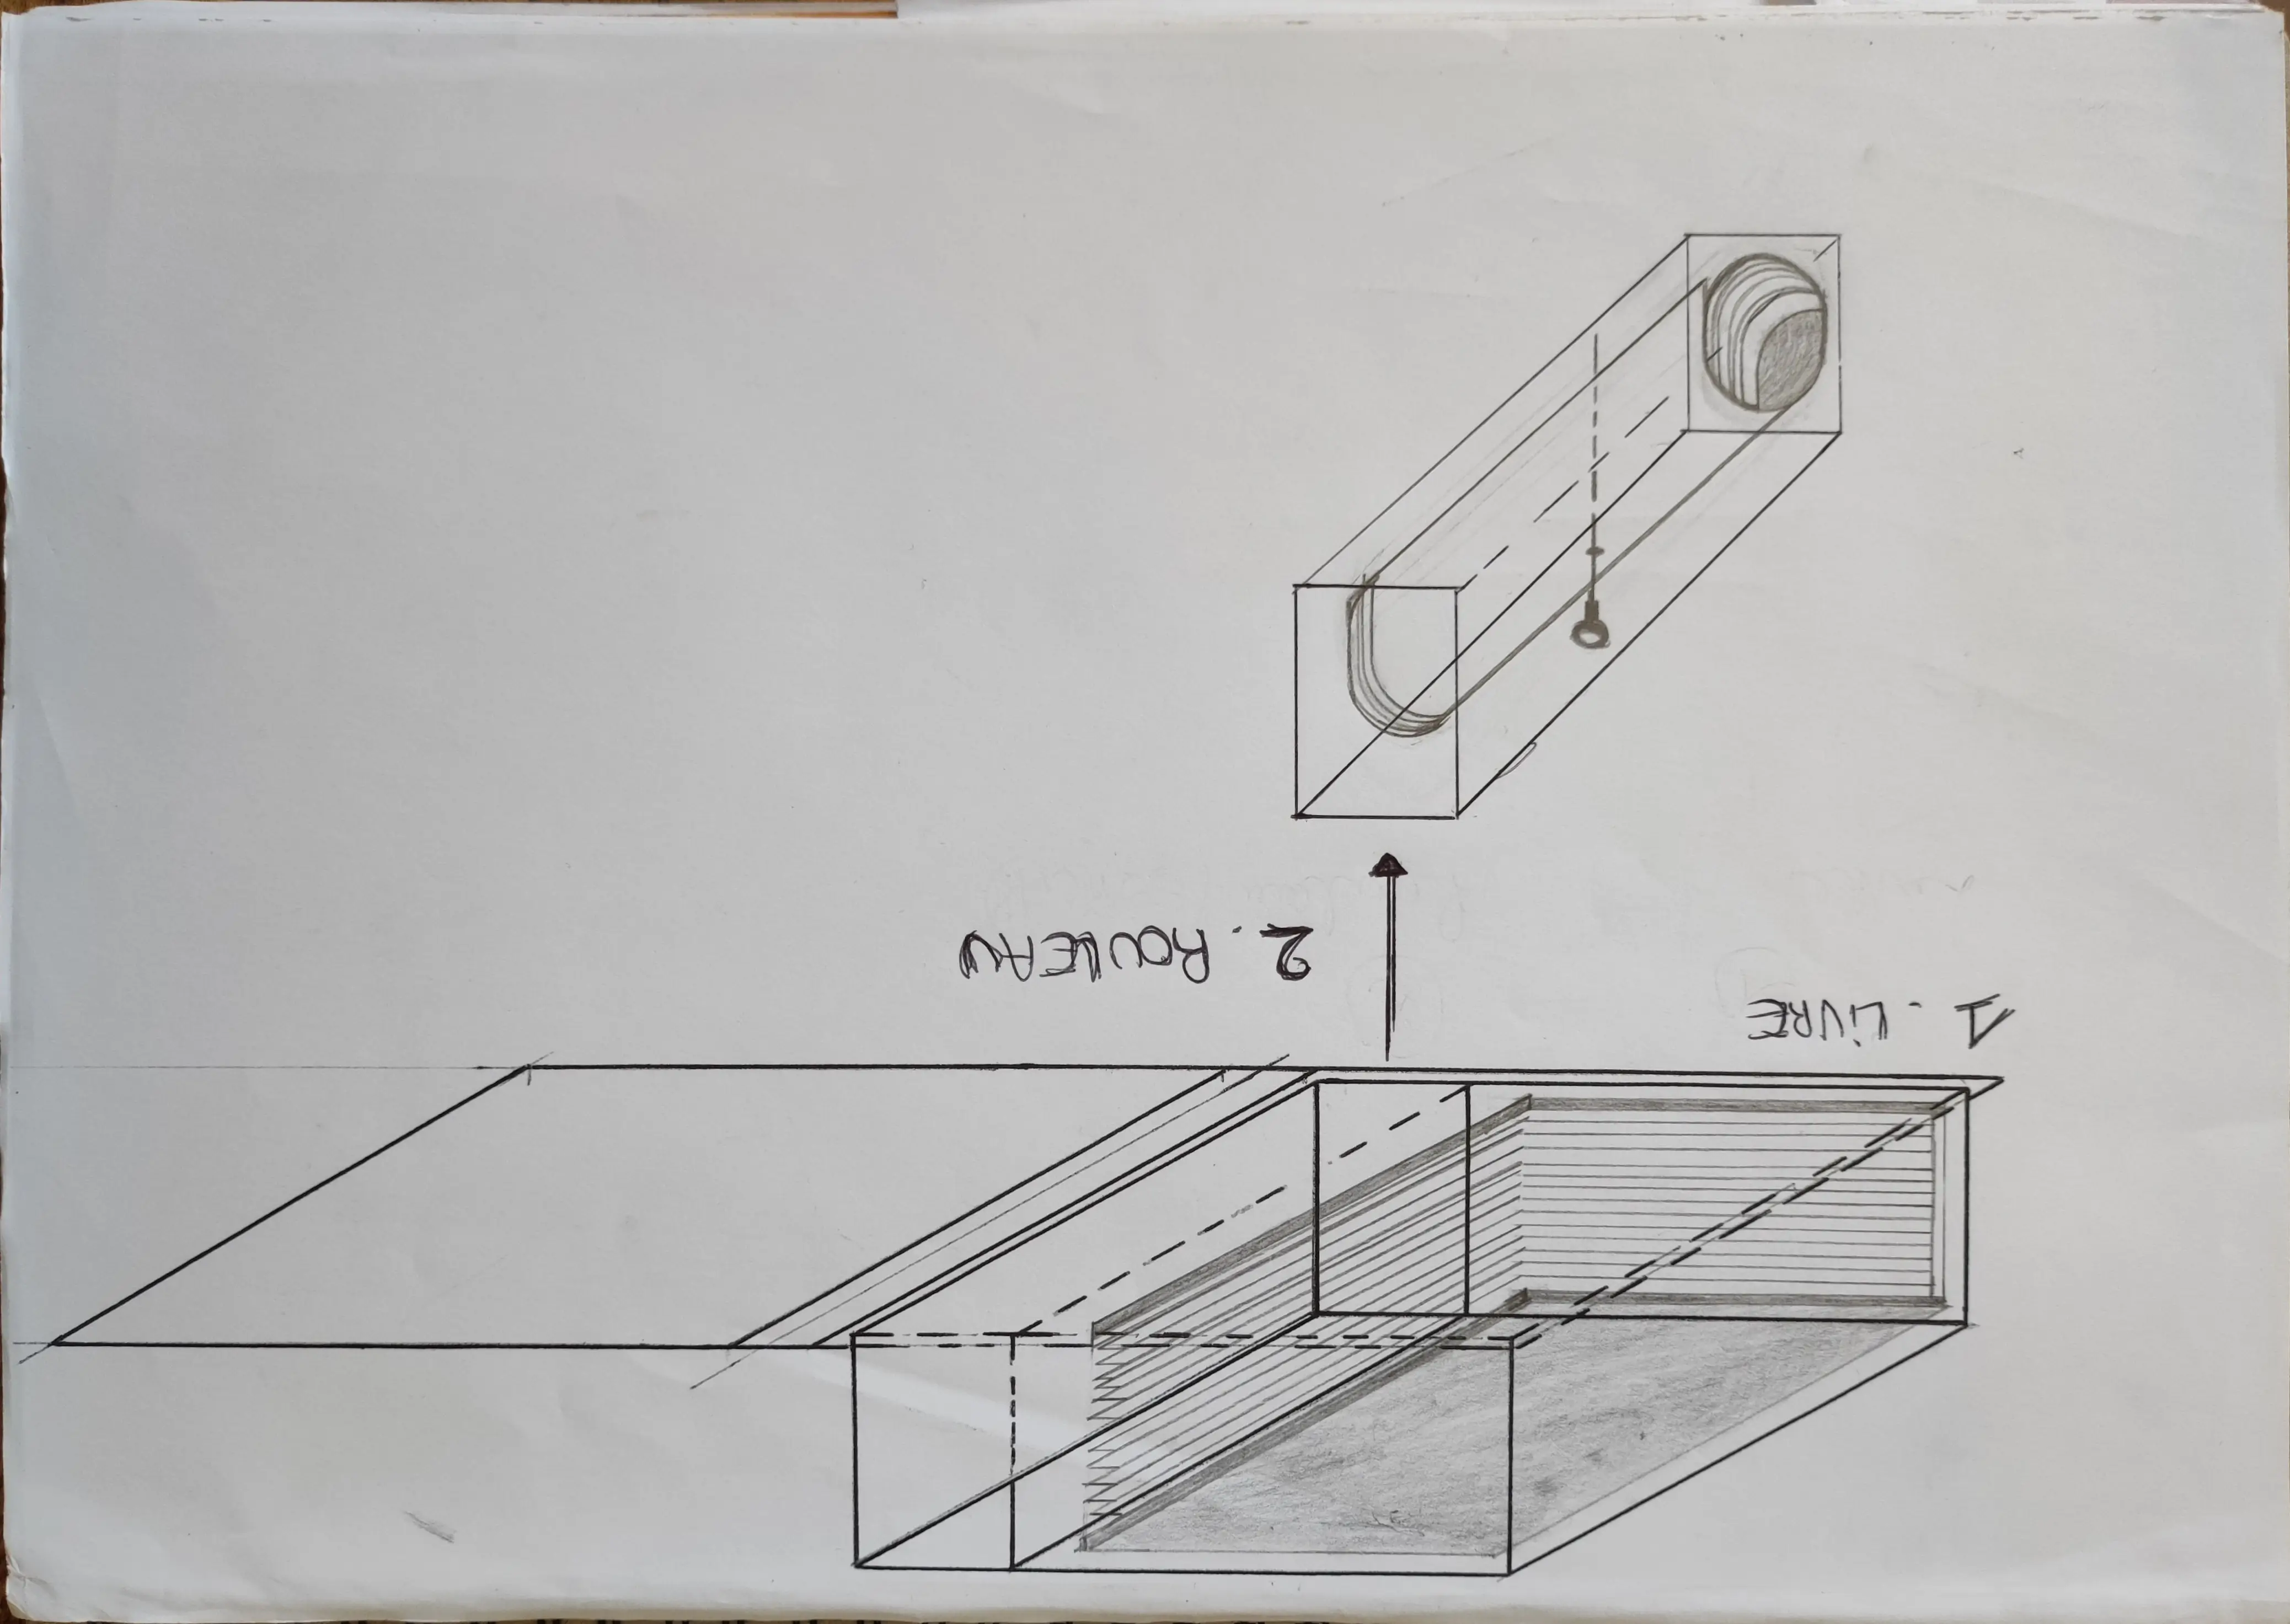 1. LiVRE
2. ROULEAU